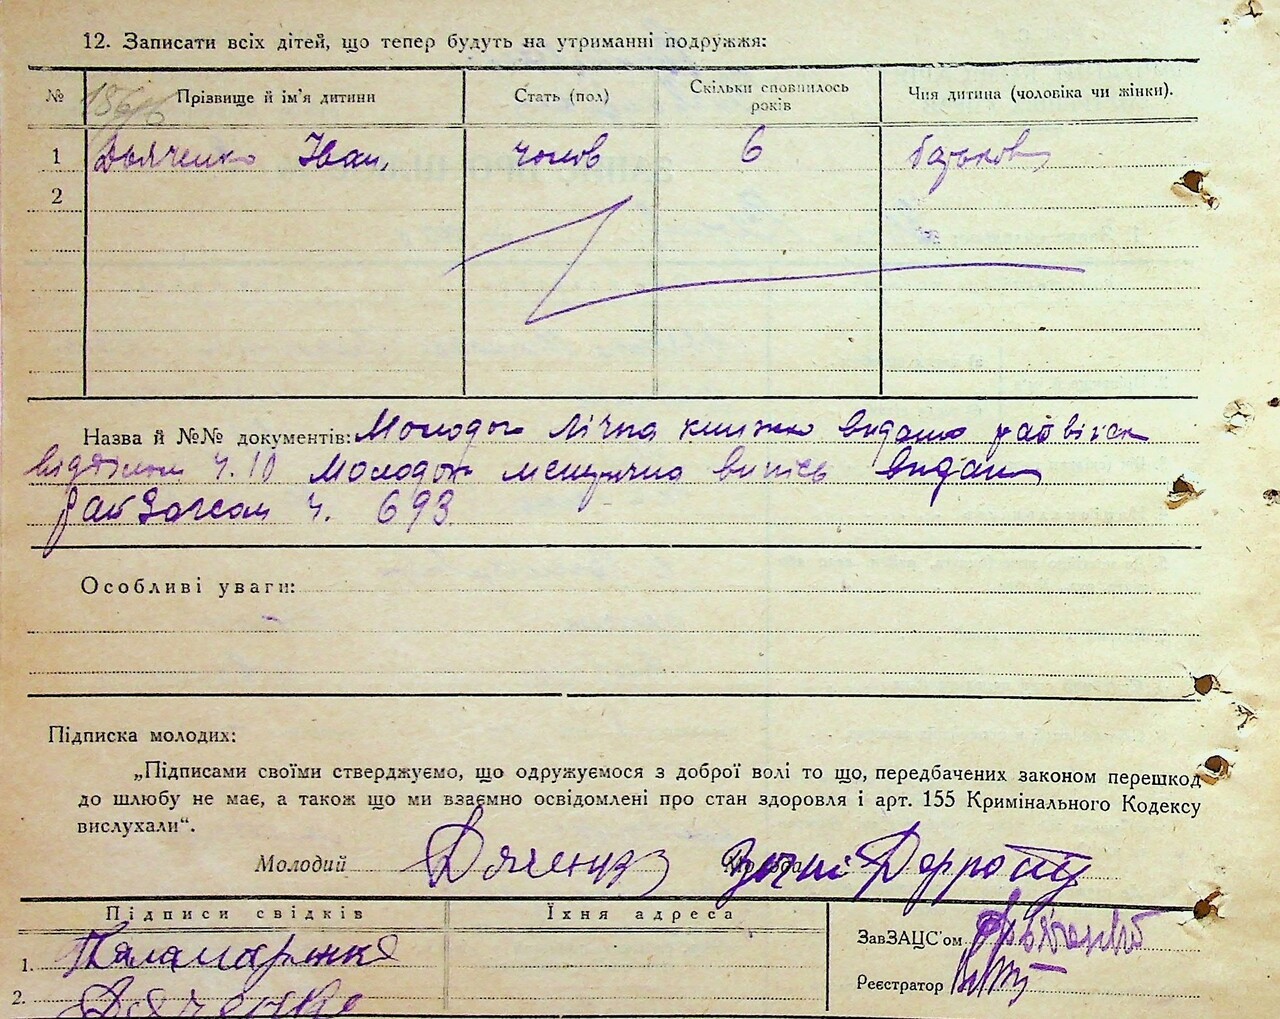 12. Записати всіх дітей, що тепер будуть на утриманні подружжя:
№ Прізвище й ім'я дитини Стать (пол) Скільки сповнилось років Чия дитина (чоловіка чи жінки).
1 Дьяченко Іван, чолов 6 батьков
2
Назва й №№ документів: Молодого лічна книжка видана райвійск
відділом ч. 10 Молодої випись видана
райЗагсом ч. 693
Особливі уваги:
Підписка молодих:
„Підписами своїми стверджуємо, що одружуємося з доброї волі то що, передбачених законом перешкод
до шлюбу не має, а також що ми взаємно освідомлені про стан здоровля і арт. 155 Кримінального Кодексу
вислухали“.
Молодий Дяченко
Підписи свідків Їхня адреса
ЗавЗАЦС'ом
1. Паламаренко
Реєстратор
2. Дяченко